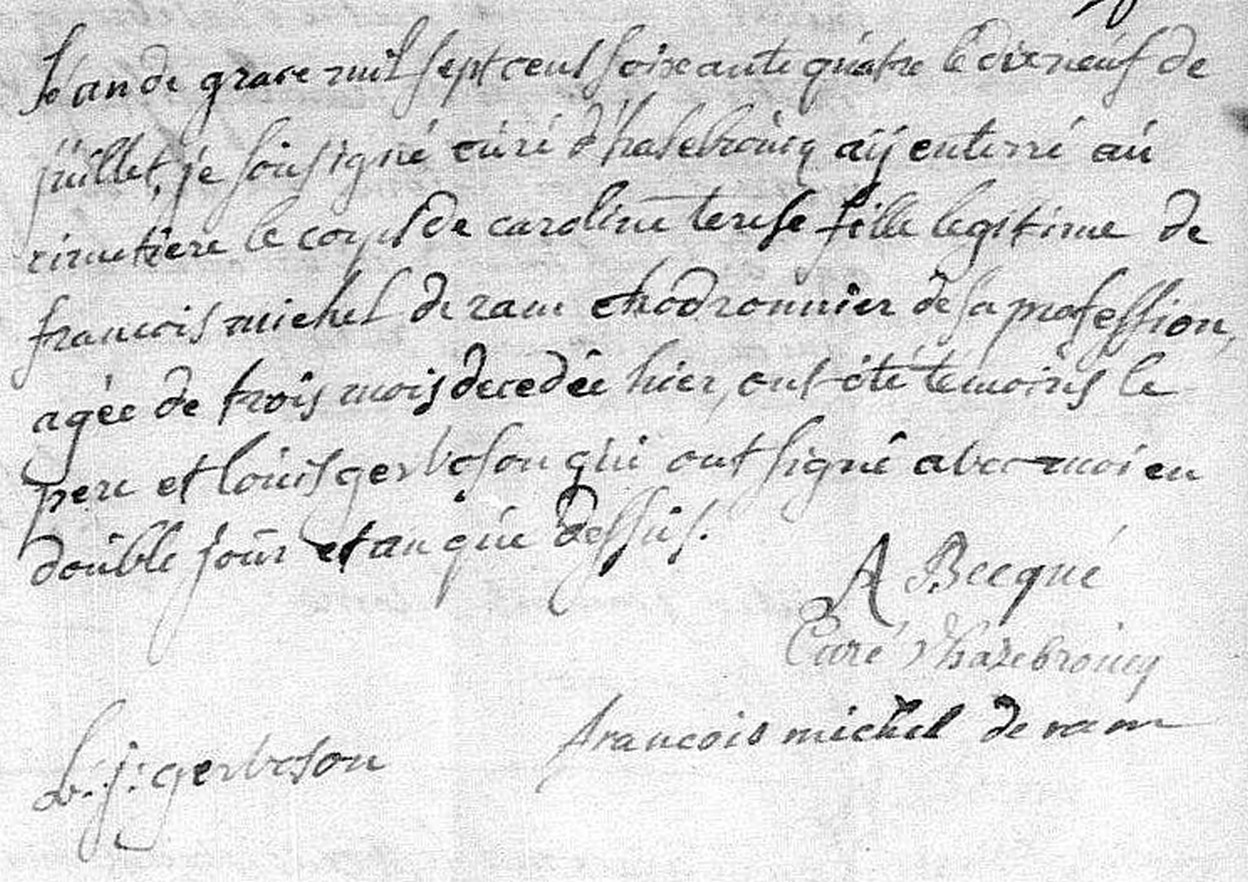 L'an de grace mil sept cent soixante quatre le dixneuf de
juillet, je soussigné curé d'hasebroucq aij enterré au
cimetiere le corps de caroline terese fille legitime de
francois michel de ram chodronnier de sa profession,
agée de trois mois decedée hier, ont été temoins le
pere et louis gerboson qui ont signé avec moi en
double jour et an que dessus.
A Becqué
Curé d'hazebroucq
francois michel de ram
L: j: gerboson